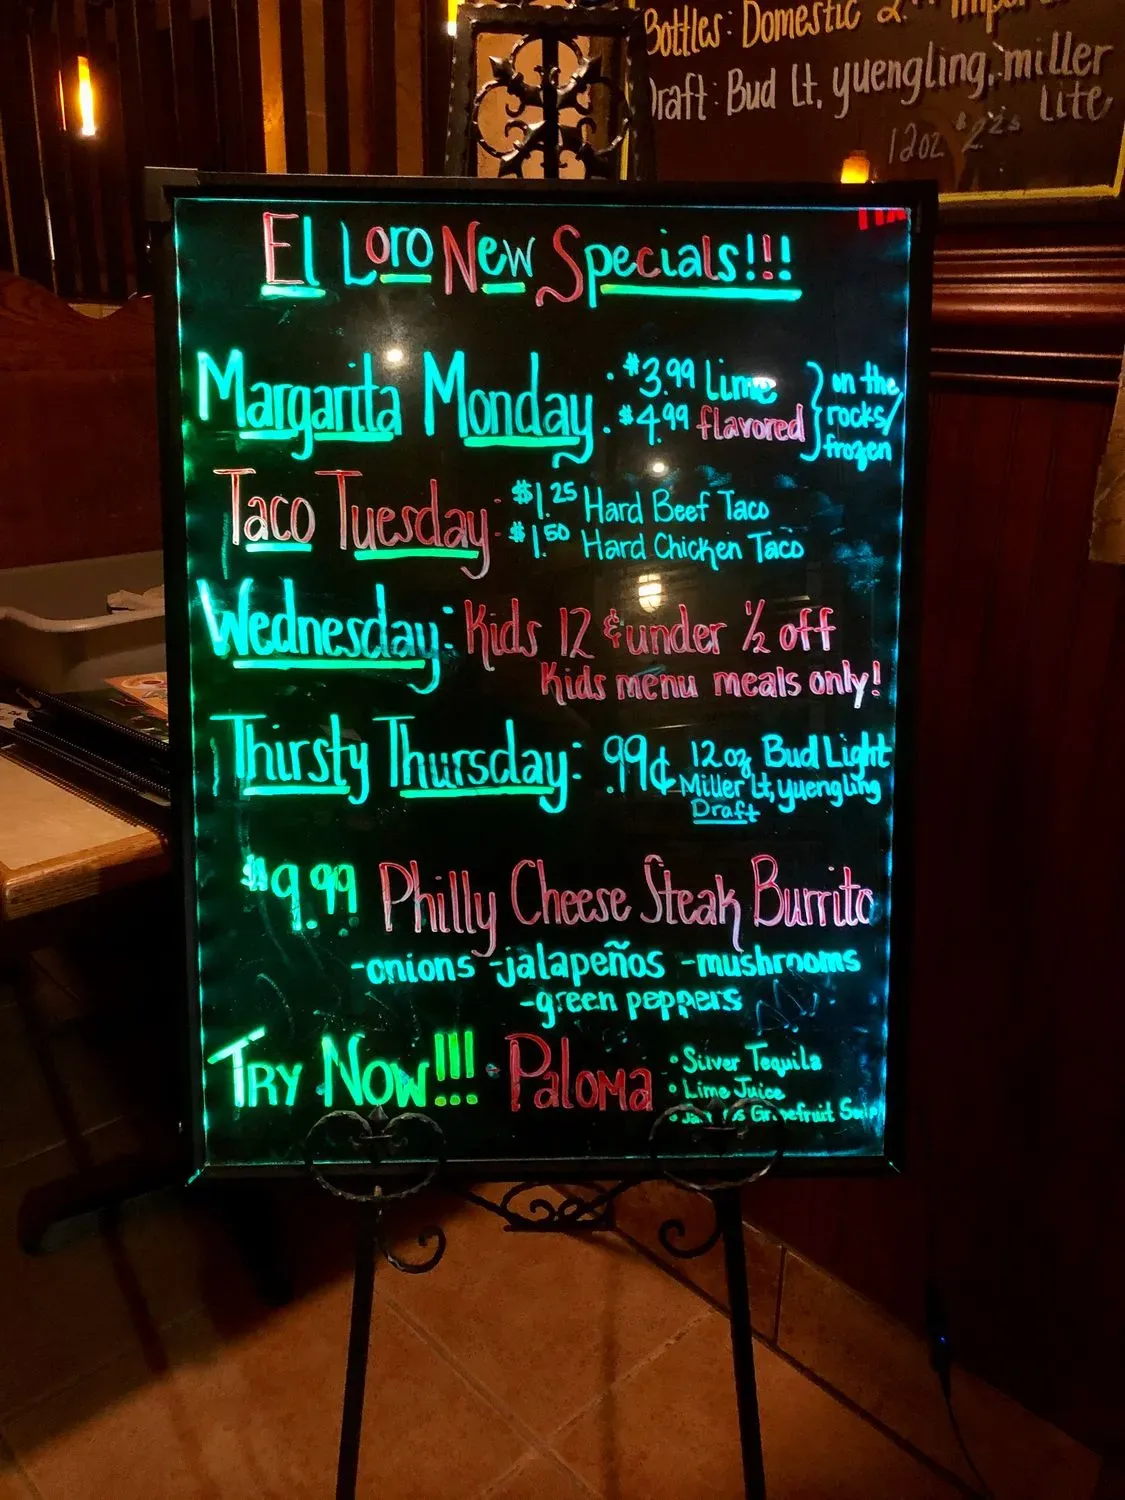 Bottles: Domestic 2
Draft: Bud Lt, yuengling, miller
Lite
12oz $2.25
El Loro New Specials!!!
Margarita Monday · $3.99 Lime
· $4.99 flavored
on the
rocks/
frozen
Taco Tuesday: $1.25 Hard Beef Taco
$1.50 Hard Chicken Taco
Wednesday: Kids 12 & under ½ off
Kids menu meals only!
Thirsty Thursday: .99¢ 12oz Bud Light
Miller Lt, yuengling
Draft
$9.99 Philly Cheese Steak Burrito
-onions -jalapeños -mushrooms
-green peppers
Try Now!!! · Paloma
• Silver Tequila
• Lime Juice
• Grapefruit